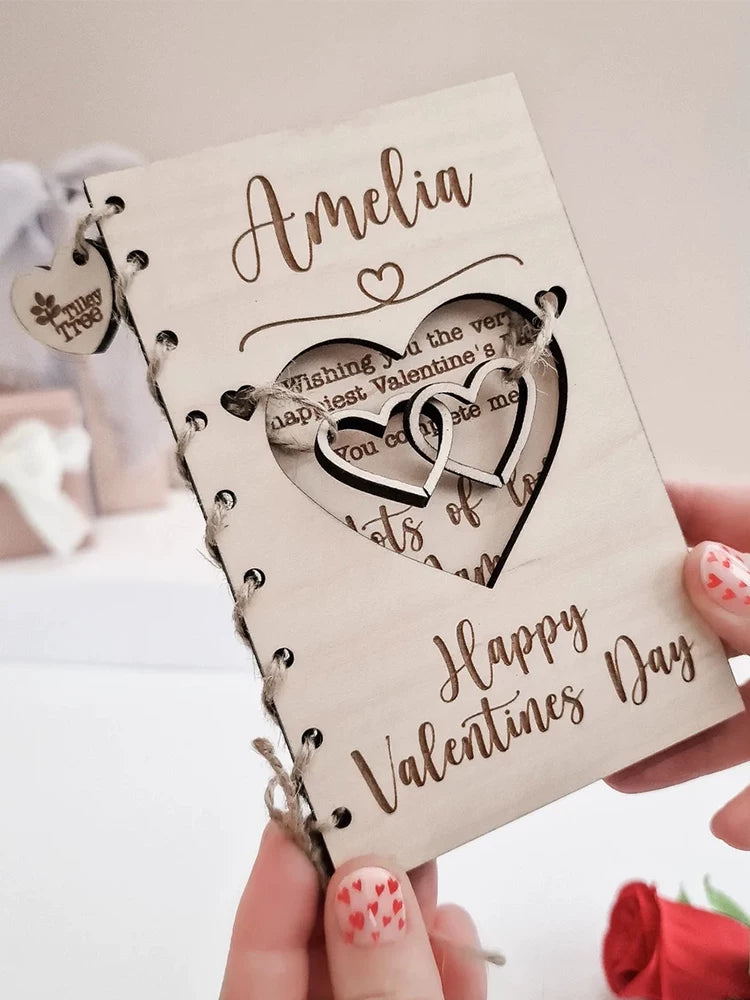 Amelia
Tilley
Tree
Wishing you the very
happiest Valentine's
You complete me
Lots of
Happy
Valentines Day